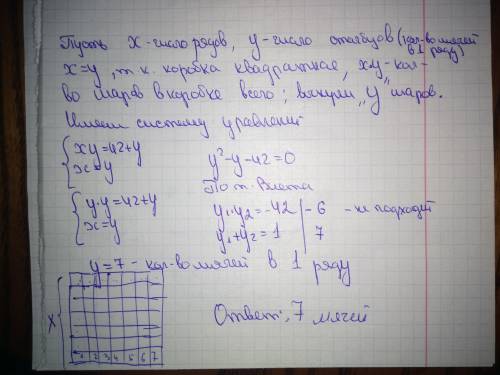 Пусть x-число рядов, y-число столбцов (кол-во мячей в 1 ряду)
x=y, т.к. коробка квадратная, xy-кол-
во шаров в коробке всего; вынули "y" шаров.
Имеем систему уравнений
xy=42+y
x=y
y·y=42+y
x=y
y²-y-42=0
По т. Виета
y₁·y₂=-42 | -6 - не подходит
y₁+y₂=1 | 7
y=7 - кол-во мячей в 1 ряду
x
1 2 3 4 5 6 7
Ответ: 7 мячей